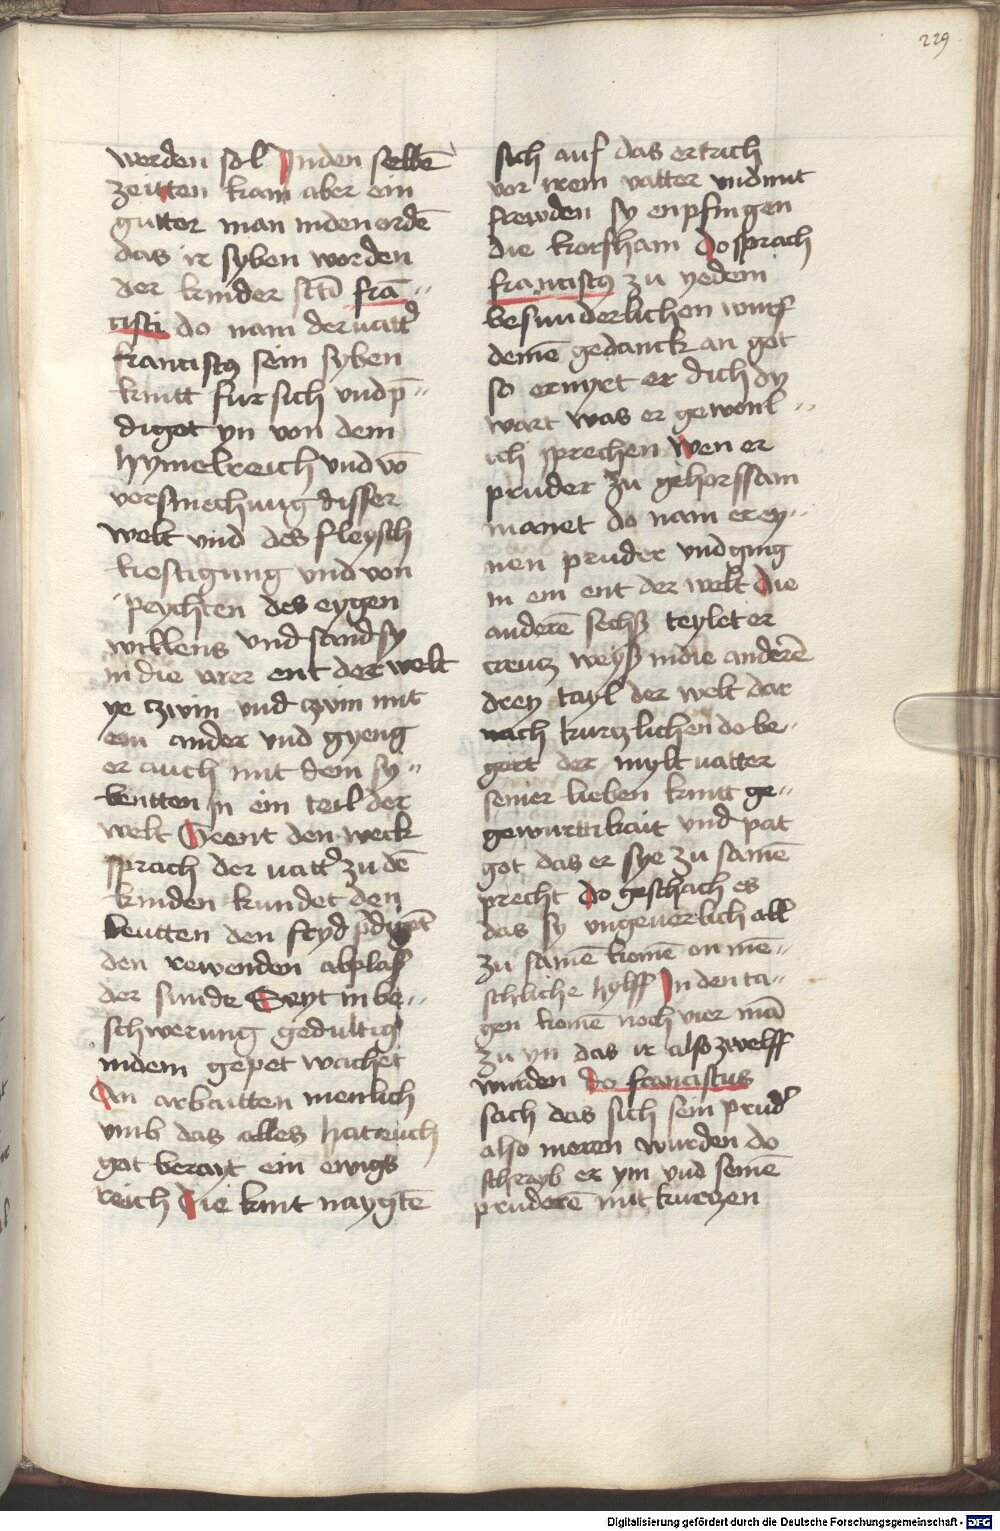 229
werden sol Inden selbē
zeitten kam aber ein
gutter man inden ordē
das ir syben worden
der kinder sctī frā„
cisci do nam der vatt᷑
franciscꝯ sein syben
kintt fur sich vnd p̄„
diget yn von dem
hymelreich vnd vō
versmechung disser
welt vnd des fleysch
kestigung vnd von
peychten des eygen
willens vnd sand sy
in die virer ent der welt
ye czwin vnd czwin mit
ein ander vnd gyeng
er auch mit dem sy„
bentten in ein teil der
welt Geent den weck
sprach der vatt᷑ zu dē
kinden kundet den
leutten den fryd p̄digēt
den rewenden ablas
der sunde Seyt in be„
schwerung gedultig
indem gepet wachet
An arbaitten menlich
vmb das alles hat euch
got berayt ein ewigs
reich Die kint naygtē
sich auf das ertrich
vor irem vatter vnd mit
frewden sy enpfingen
die korsham Do sprach
franciscꝯ zu yedem
besunderlichen wurf
deinē gedanck an got
so ernyrt er dich dy
wort was er gewonl„
ich sprechen Wen er
pruder zu gehorssam
manet do nam er ey„
nen pruder vnd ging
in ein ent der welt Die
anderē sechs teylet er
creucz weyß in die anderē
drey tayl der welt dar
nach kurczlichen do be„
gert der mylt vatter
seiner lieben kintt ge„
gewurttikait vnd pat
got das er sye zu samē
precht do geschach es
das sy vngeuerlich all
zu samē komē on mē„
schliche hylff In den ta„
gen komē noch vier mā
zu yn das ir also zwelff
wurden do franciscus
sach das sich sein prud᷑
also meren wurden do
schrayb er ym vnd seinē
pruderē mit kurczen
Digitalisierung gefördert durch die Deutsche Forschungsgemeinschaft - DFG